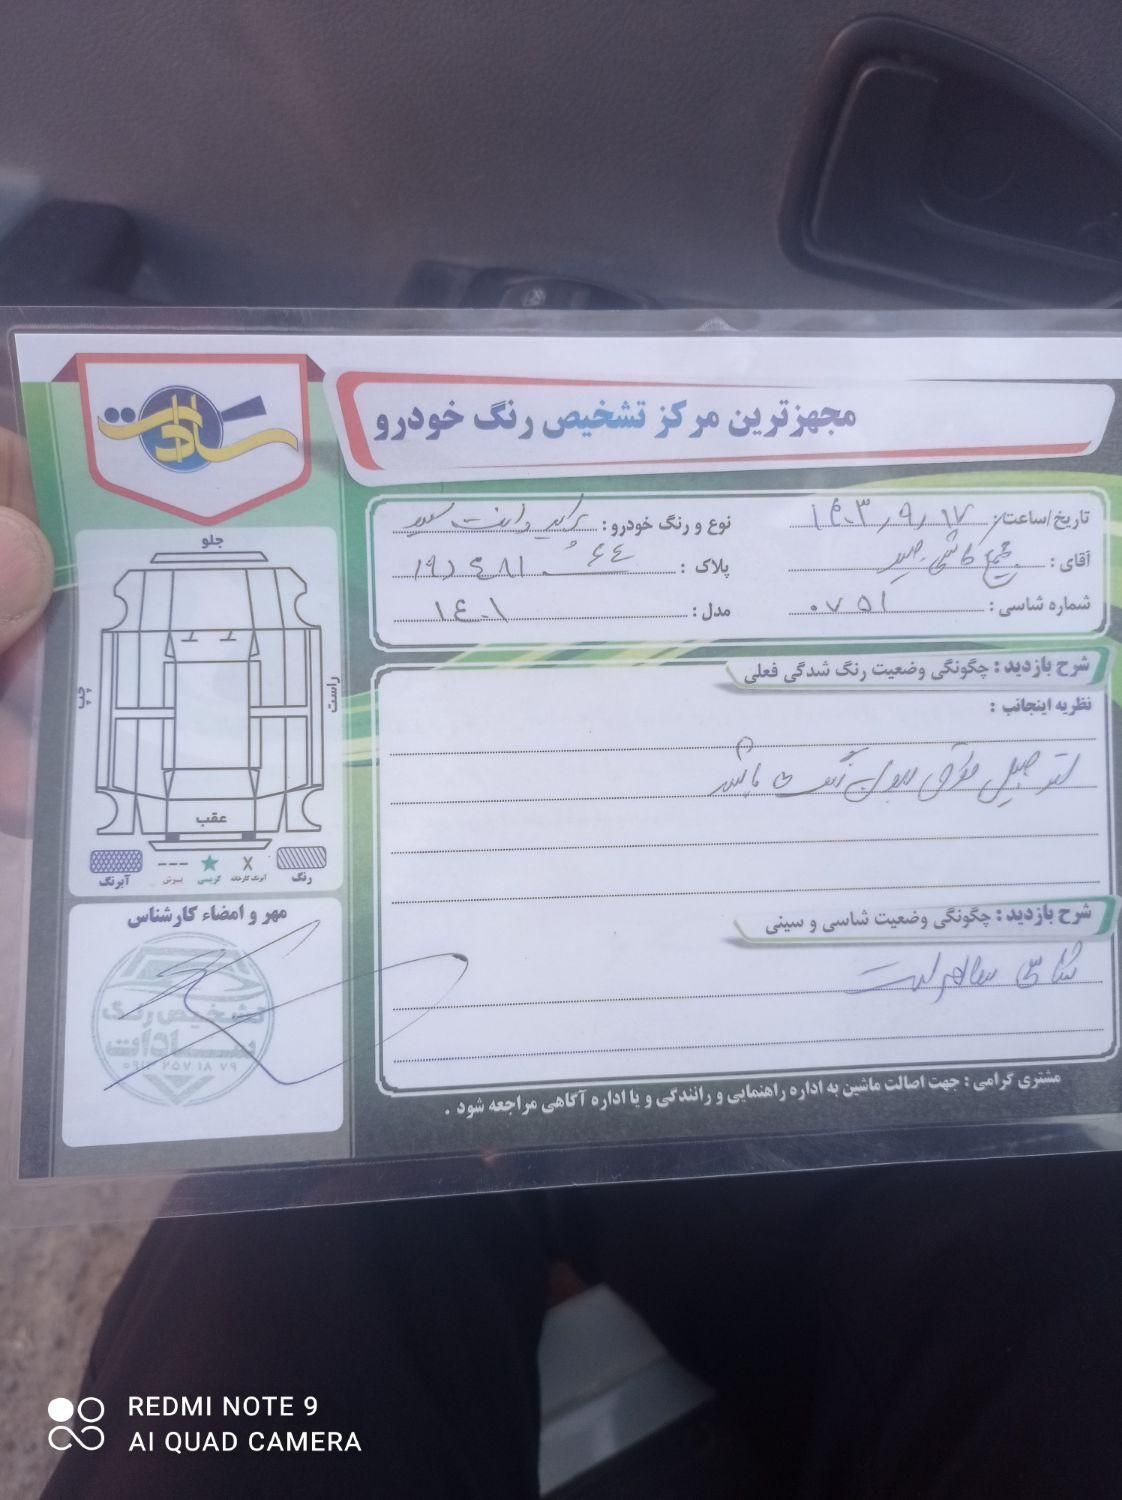 سادات
مجهزترین مرکز تشخیص رنگ خودرو
تاریخ/ساعت: ۱۴۰۳/۹/۱۷
نوع و رنگ خودرو: پراید وانت سفید
آقای:
پلاک: ۶۴
شماره شاسی: ۰۷۵۱
مدل: ۱۴۰۱
شرح بازدید: چگونگی وضعیت رنگ شدگی فعلی
نظریه اینجانب:
اتومبیل فوق بدون رنگ می باشد
شرح بازدید: چگونگی وضعیت شاسی و سینی
شاسی سالم است
جلو
چپ
راست
عقب
رنگ
آبرنگ کارخانه
گریسی
برش
آبرنگ
مهر و امضاء کارشناس
تشخیص رنگ
سادات
۰۹۱۳ ۲۵۷ ۱۸ ۷۹
مشتری گرامی: جهت اصالت ماشین به اداره راهنمایی و رانندگی و یا اداره آگاهی مراجعه شود.
REDMI NOTE 9
AI QUAD CAMERA